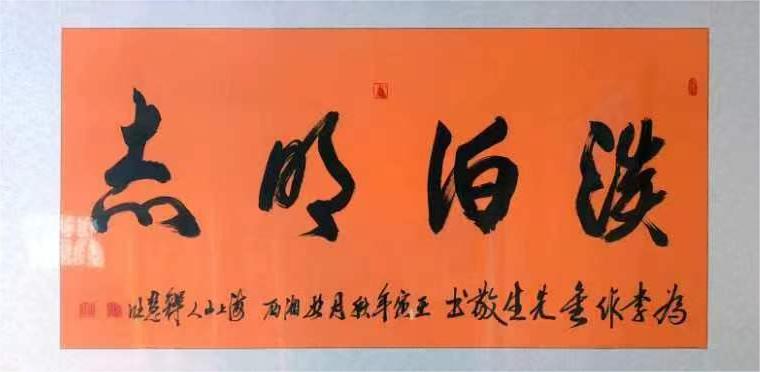 淡泊明志
為李作先生敬书 壬寅年秋月於湘西 海上山人释慧